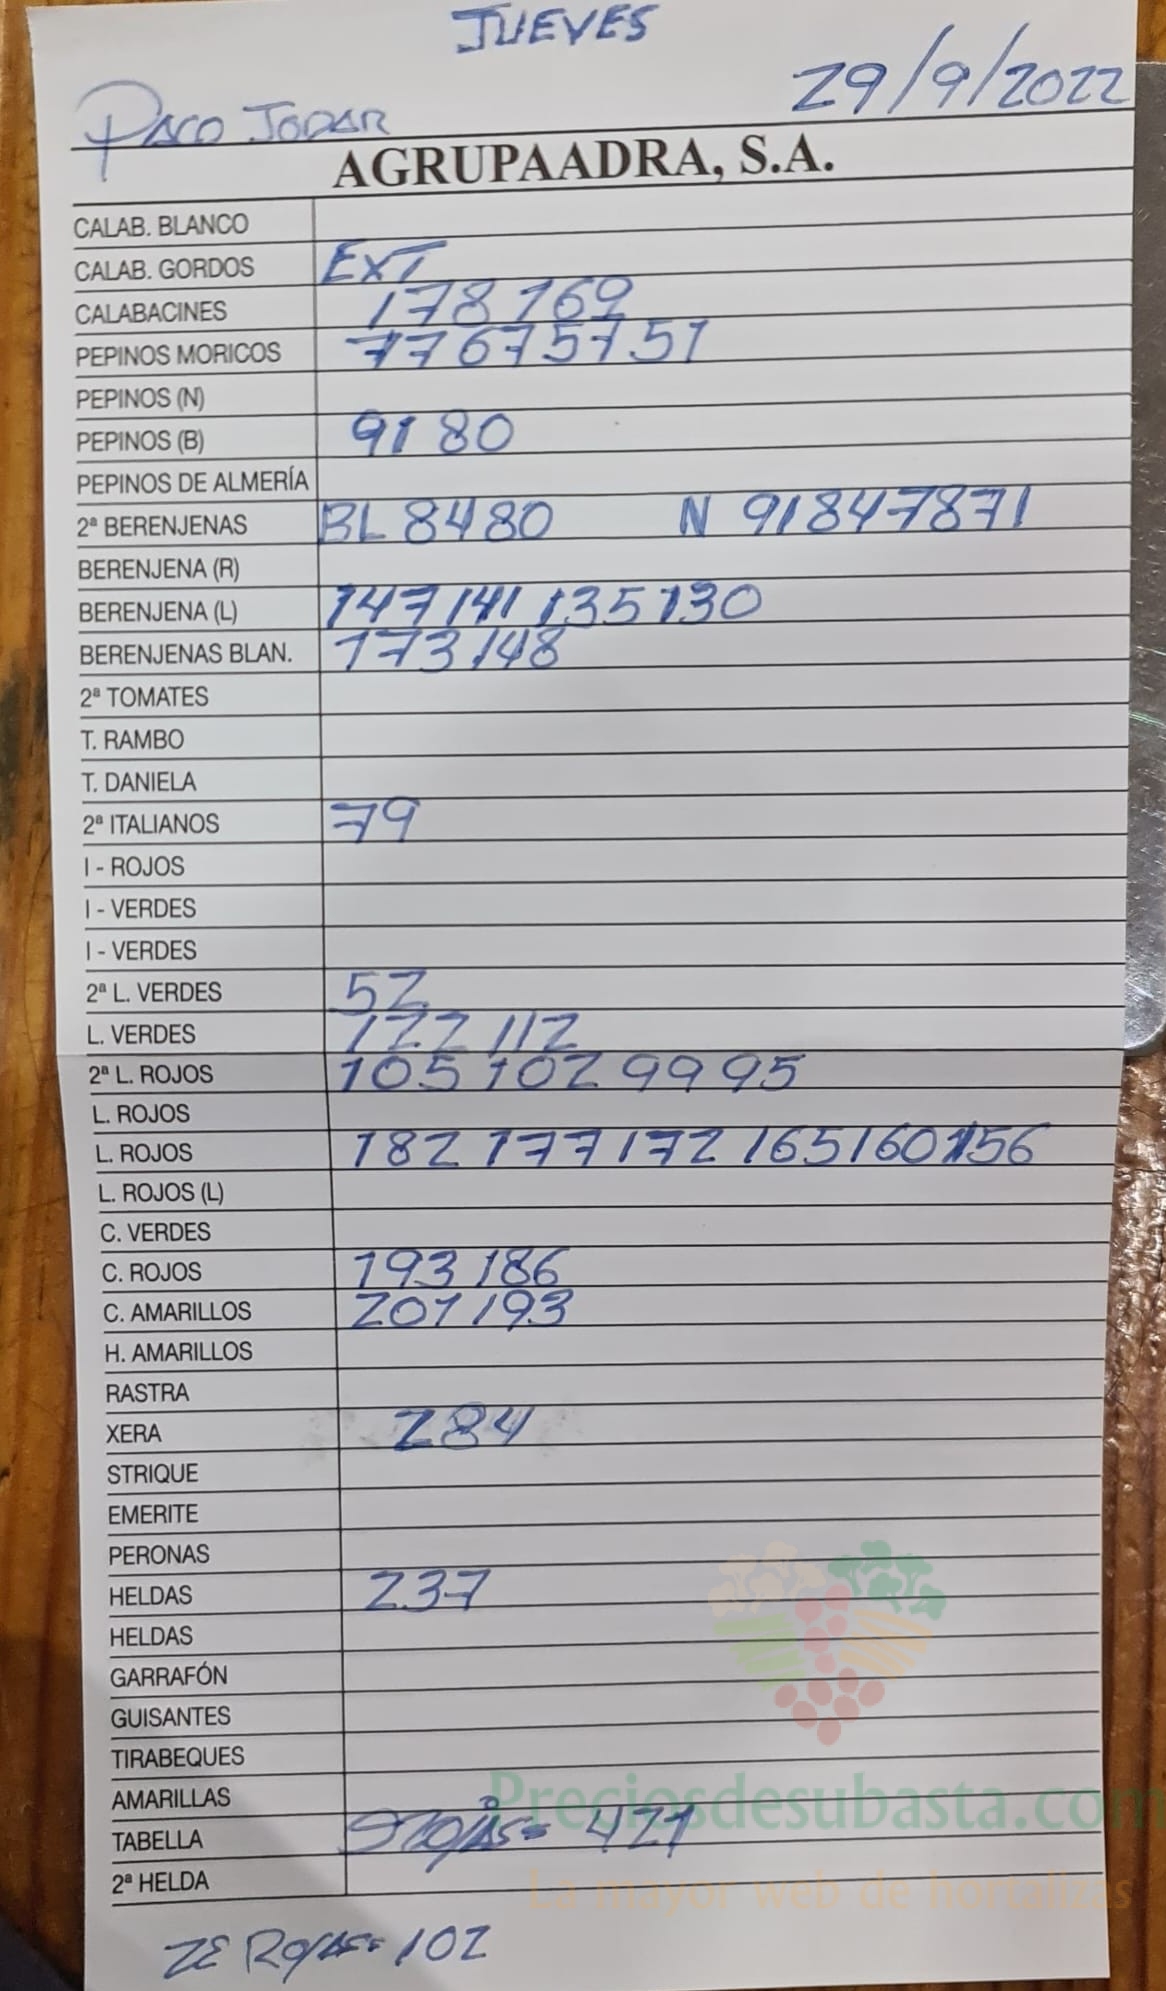 JUEVES
29/9/2022
PACO JODAR
AGRUPAADRA, S.A.
CALAB. BLANCO
CALAB. GORDOS EXT
CALABACINES 178 169
PEPINOS MORICOS 77 67 57 51
PEPINOS (N)
PEPINOS (B) 91 80
PEPINOS DE ALMERÍA
2ª BERENJENAS BL 84 80 N 91 84 78 71
BERENJENA (R)
BERENJENA (L) 147 141 135 130
BERENJENAS BLAN. 173 148
2ª TOMATES
T. RAMBO
T. DANIELA
2ª ITALIANOS 79
I - ROJOS
I - VERDES
I - VERDES
2ª L. VERDES 52
L. VERDES 122 112
2ª L. ROJOS 105 102 99 95
L. ROJOS
L. ROJOS 182 177 172 165 160 156
L. ROJOS (L)
C. VERDES
C. ROJOS 193 186
C. AMARILLOS 201 193
H. AMARILLOS
RASTRA
XERA 284
STRIQUE
EMERITE
PERONAS
HELDAS 237
HELDAS
GARRAFÓN
GUISANTES
TIRABEQUES
AMARILLAS
Preciosdesubasta.com
TABELLA = 421
2ª HELDA
La mayor web de hortalizas
= 102